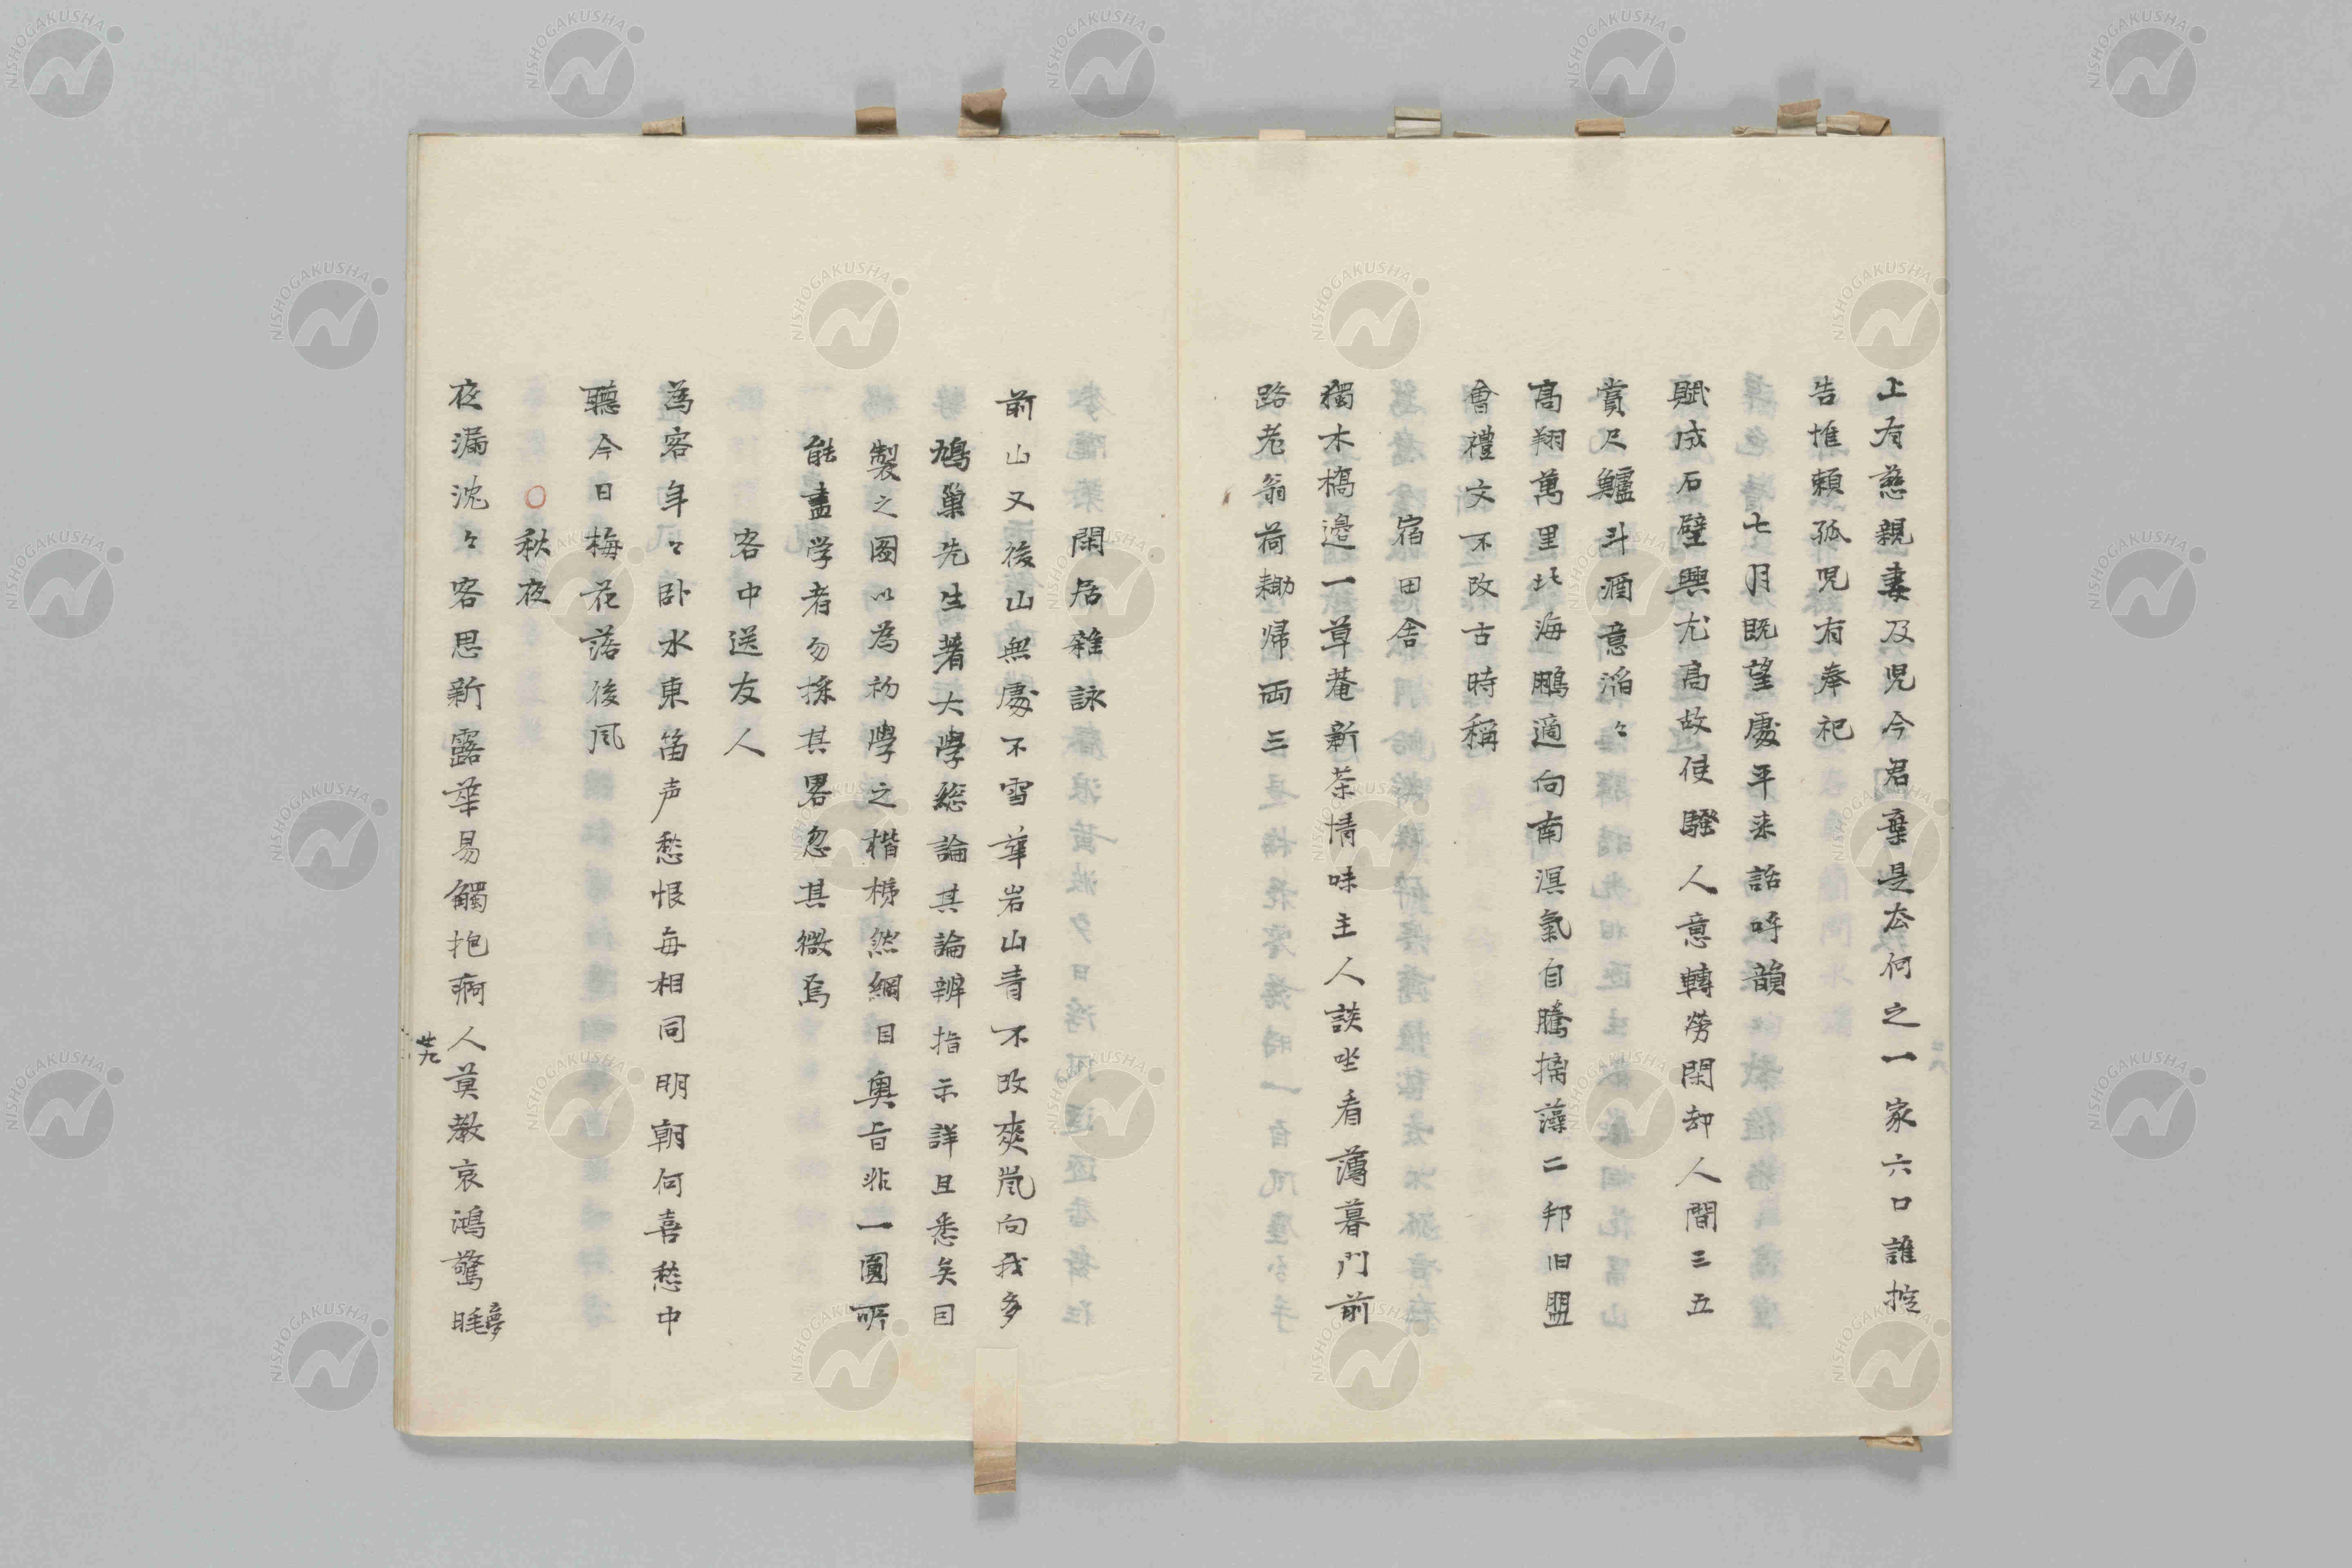 上有慈親妻及児今君棄是太何之一家六口誰控
告惟頼孤児有奉祀
七月既望處平来話呼韻
賦成石壁興尤高故使騒人意轉労閑却人間三五
賞尺鱸斗酒意滔々
高翔萬里北海鵬適向南溟氣自騰摛藻二邦旧盟
會禮文不改古時稱
宿田舎
獨木橋邉一草菴新茶情味主人談坐看薄暮門前
路老翁荷耡帰両三
閑居雑詠
前山又後山無處不雪華岩山青不改爽嵐向我多
鳩巣先生著大學総論其論辨指示詳且悉矣目
製之圖以為初學之楷梯然綱目奥旨非一圓所
能盡学者勿採其畧忽其微焉
客中送友人
為客年々卧水東笛声愁恨毎相同明朝何喜愁中
聽今日梅花落後風
○秋夜
夜漏沈々客思新露華易觸抱痾人莫教哀鴻驚睡夢
廿九
NISHOGAKUSHA